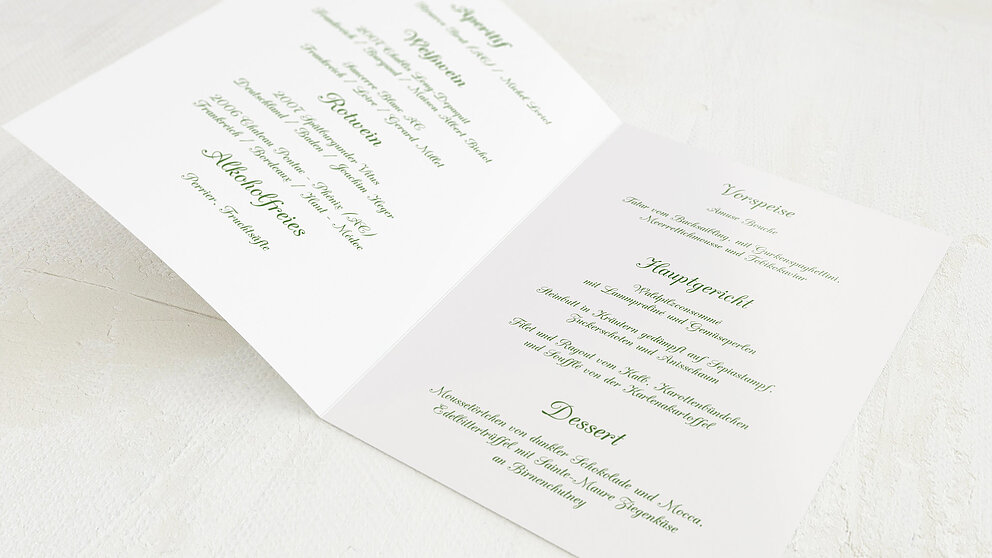 Aperitif
Weißwein
2007 Chablis Long Depaquit
Frankreich / Burgund / Maison Albert Bichot
Sancerre Blanc AC
Frankreich / Loire / Gerard Millet
Rotwein
2007 Spätburgunder Vitus
Deutschland / Baden / Joachim Heger
2006 Chateau Pontac - Phénix (AC)
Frankreich / Bordeaux / Haut - Médoc
Alkoholfreies
Perrier, Fruchtsäfte
Vorspeise
Amuse Bouche
Tatar vom Bachsaibling, mit Gurkenspaghettini,
Meerrettichmousse und Tobikokaviar
Hauptgericht
Waldpilzconsommé
mit Lammpraliné und Gemüseperlen
Steinbutt in Kräutern gedämpft auf Sepiastampf,
Zuckerschoten und Anisschaum
Filet und Ragout vom Kalb, Karottenbündchen
und Soufflé von der Karlenakartoffel
Dessert
Moussetörtchen von dunkler Schokolade und Mocca,
Edelbittertrüffel mit Sainte-Maure Ziegenkäse
an Birnenchutney